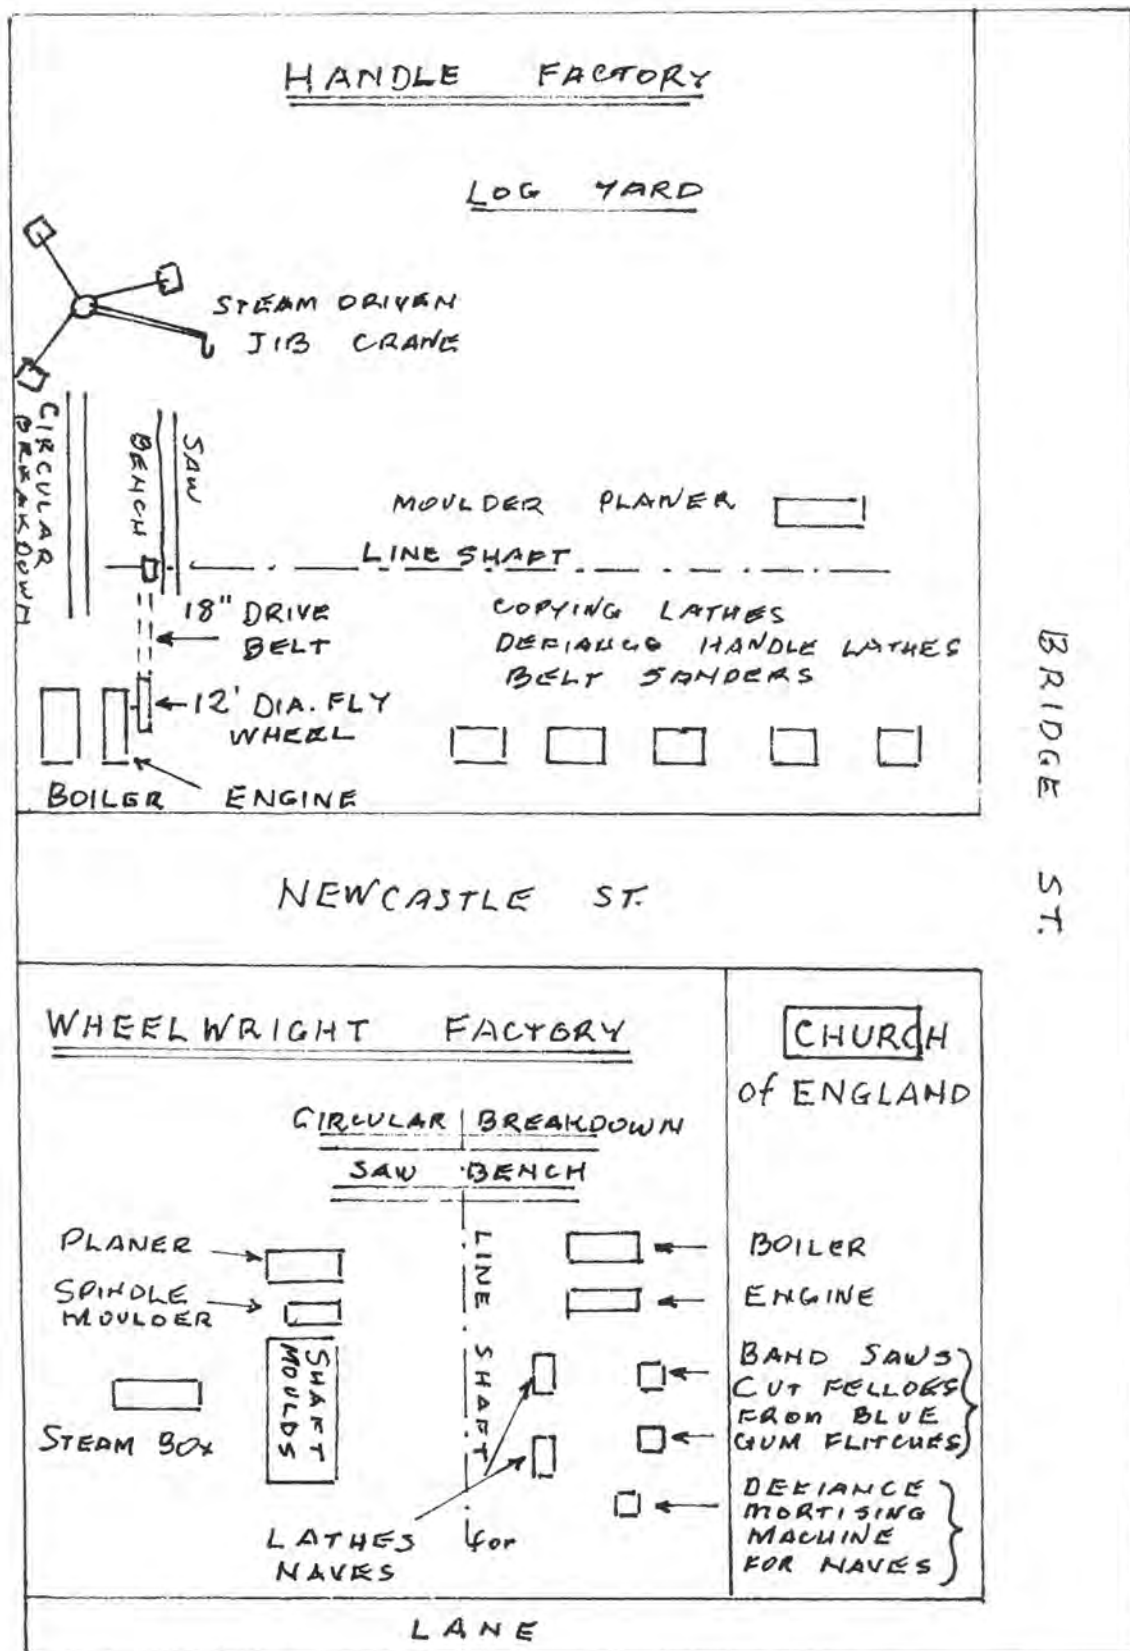 HANDLE FACTORY
LOG YARD
STEAM DRIVEN
JIB CRANE
CIRCULAR
BREAKDOWN
SAW
BENCH
MOULDER PLANER
LINE SHAFT
18" DRIVE
BELT
12' DIA. FLY
WHEEL
COPYING LATHES
DEFIANCE HANDLE LATHES
BELT SANDERS
BOILER
ENGINE
BRIDGE ST.
NEWCASTLE ST.
WHEELWRIGHT FACTORY
CHURCH
of ENGLAND
CIRCULAR BREAKDOWN
SAW BENCH
PLANER
SPINDLE
MOULDER
SHAFT
MOULDS
STEAM BOX
LINE SHAFT
LATHES for
NAVES
BOILER
ENGINE
BAND SAWS
CUT FELLOES
FROM BLUE
GUM FLITCHES
DEFIANCE
MORTISING
MACHINE
FOR NAVES
LANE